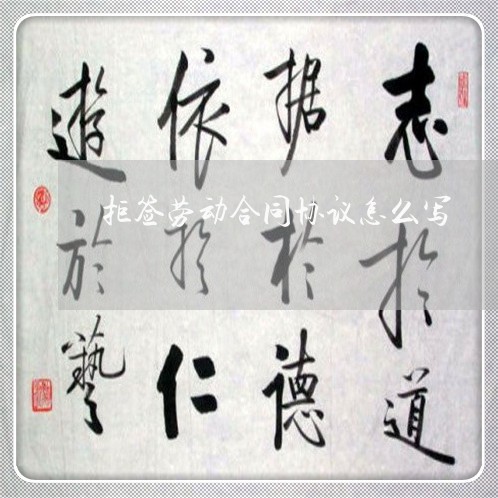 志於道
据於德
依於仁
遊於藝
拒签劳动合同协议怎么写